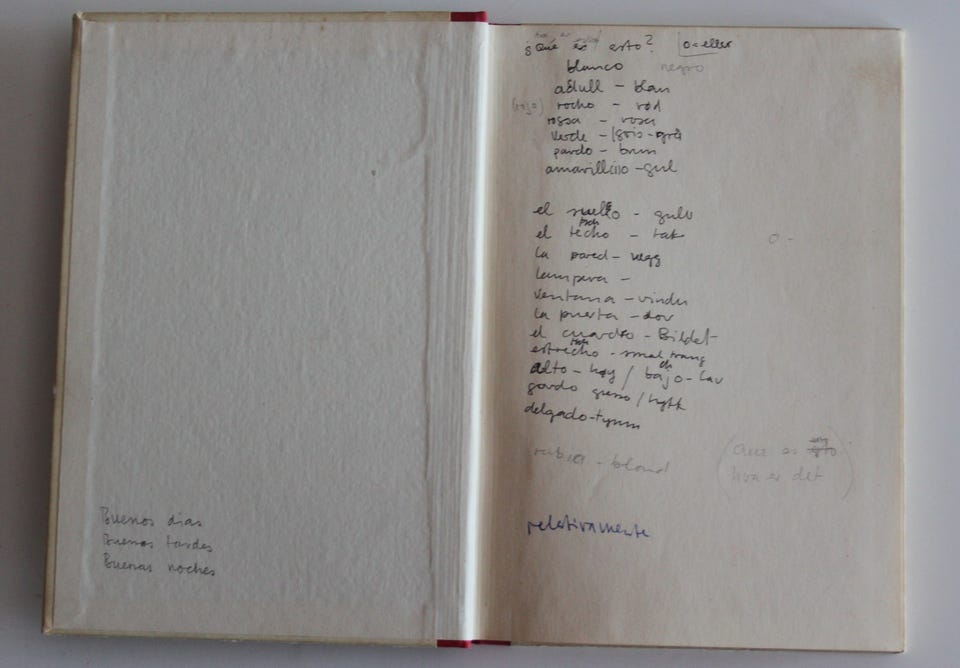 Buenos dias
Buenos tardes
Buenas noches
hva er
¿Que es esto? o = eller
blanco negro
adull - blau
(rojo) rocho - röd
rossa - rosa
verde - /gris - grå
pardo - brun
amarillino - gul
el suello - gulv
tsch
el techo - tak
o -
la pared - vegg
lampera -
ventana - vindu
la puerta - dor
el cuardro - Bildet
tsch
estrecho - smal, trang
ch
alto - høy / bajo - lav
gordo greso / tykk
delgado - tynn
rubia - blond
(Que es esto
hva er det)
relativamente